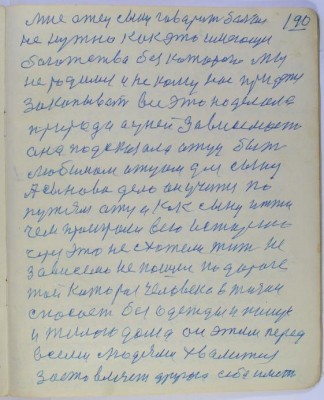 190
Мне отец сыну говорит больш
не нужно как это
богатство без которого мы
не родились и не кому нас придти
закапыват все это поделала
природа а у ней зависемость
она подсказала отцу быт
любимом отцом для сыну
А сынова дело он учити по
путям отца как сыну итти
чем
это не схотели жит не
зависемо не пошли по дароге
той котора человека в жизни
спасает без одежды и пищи
и жилого дома он этим перед
всеми людями хвалится
заставляет другого себе имет